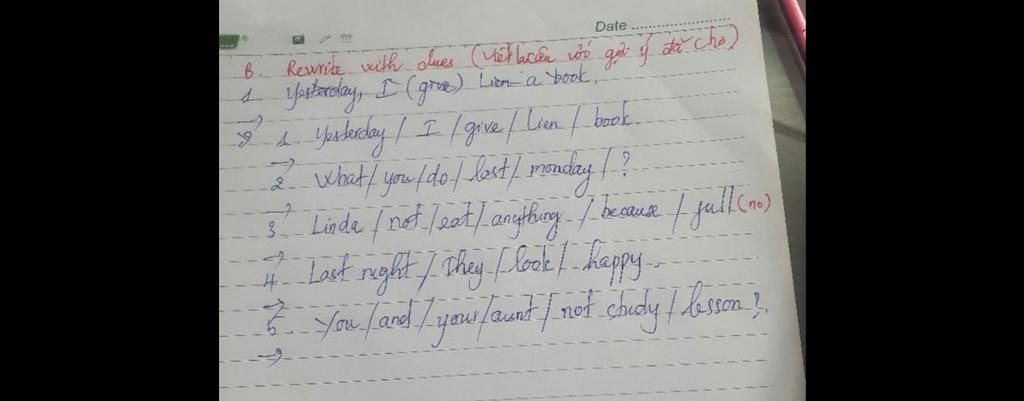 Date ..............
B. Rewrite with clues (Viết lại câu với gợi ý đã cho)
1 Yesterday, I (give) Lien a book.
→
1. Yesterday / I / give / Lien / book.
→
2 What / you / do / last / monday / ?
→
3 Linda / not / eat / anything / because / full (no)
→
4. Last night / They / look / happy.
→
5. You / and / your / aunt / not study / lesson ?.
→